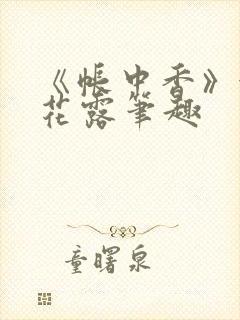 《帐中香》
花露笔趣
童曙泉